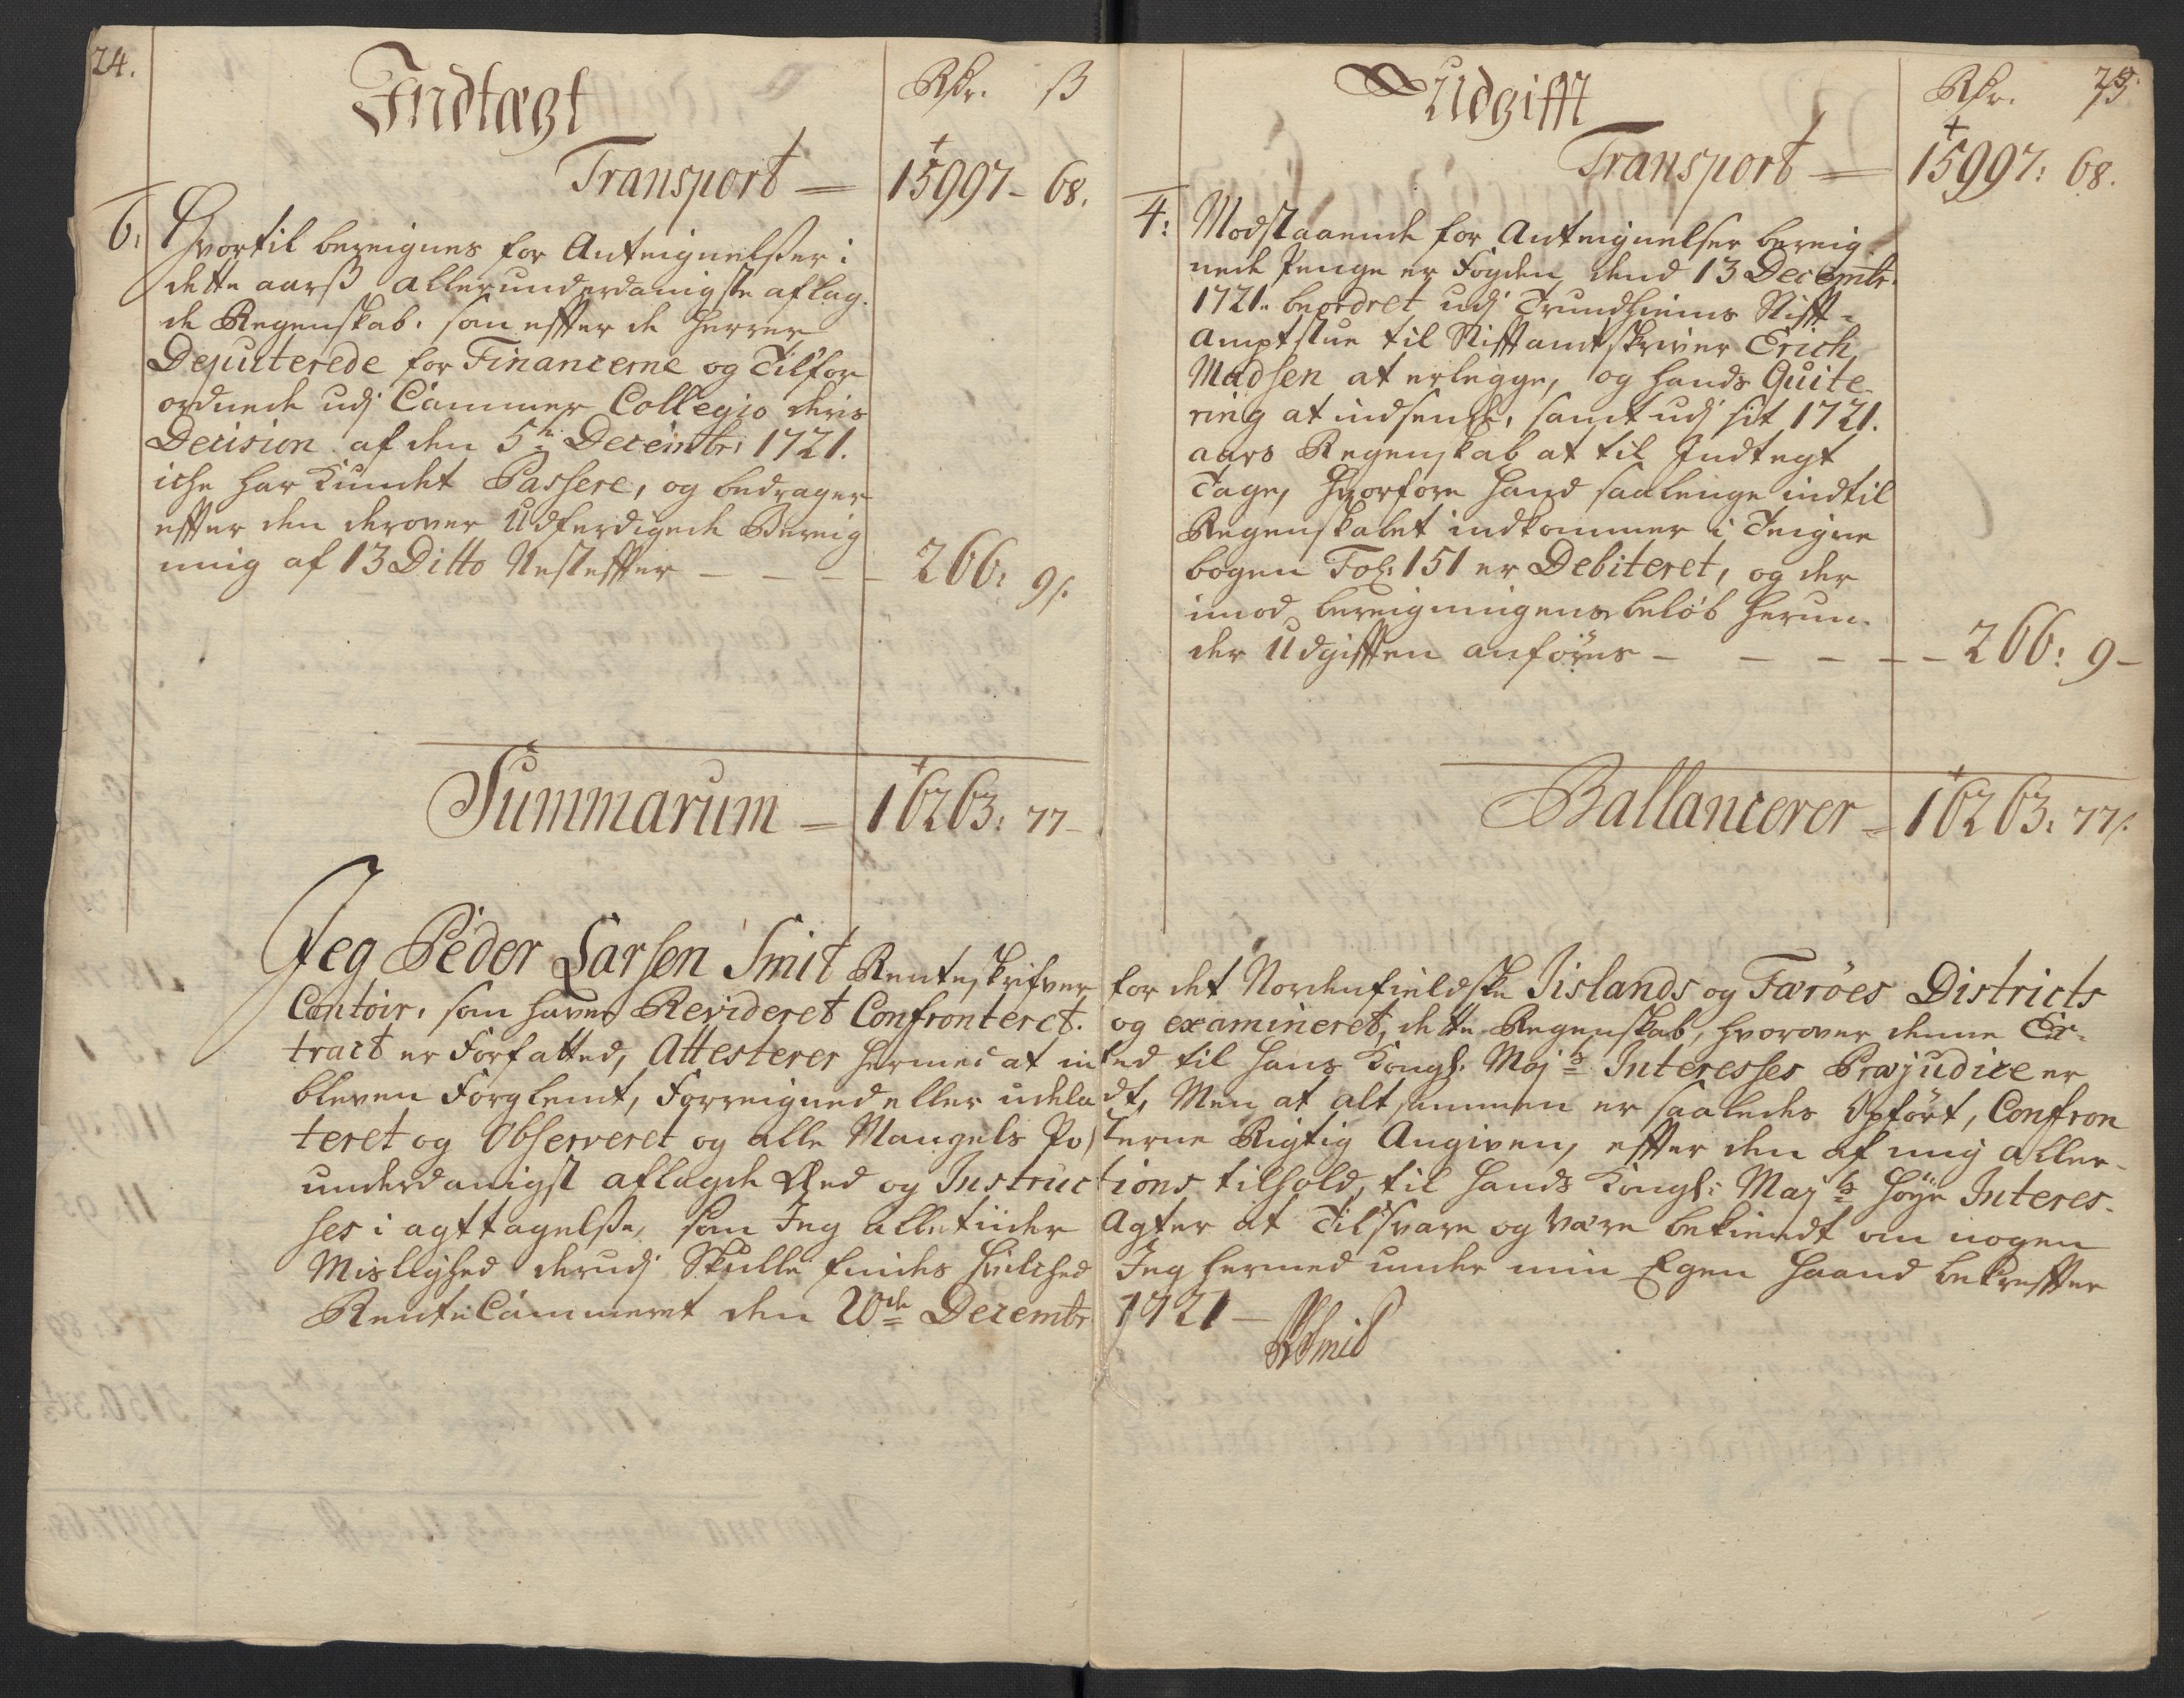 24.
Indtægt
Rdr. ß
Transport = 15997 - 68.
6: Hvortil bereignes for Anteignelßer i
dette aarß allerunderdanigste aflag-
de Regenskab, som effter de Herrer
Deputerede for Financerne og Tilfor
ordnede udj Cammer Collegio deris
Decision af den 5te Decembr: 1721.
iche har kundet Passere, og bedrager
effter den derover Udferdigede Bereig
ning af 13 Ditto Nesteffter - - - - 266: 9/.
Summarum = 16263: 77 -
25.
Udgifft
Rdr. ß
Transport = 15997: 68.
4: Modstaaende for Anteignelser bereig
nede Penge er Fogden dend 13 Decembr.
1721. beordret udj Trundhiems Stifft-
Amptstue til Stifftamtskriver Erich
Madsen at erlegge, og hands Quite-
ring at indsende, samt udj sit 1721.
aars Regenskab at til Indtegt
Tage, Hvorfore hand saalenge indtil
Regenskabet indkommer i Teigne
bogen Fol: 151 er Debiteret, og der
imod bereigningens beløb herun-
der Udgifften anføres - - - - - 266: 9 -
Ballancerer = 16263: 77/.
Jeg Peder Larsen Smit Renteskrifver for det Nordenfieldske Jislands og Færöes Districts
Contoir, som haver Revideret Confronteret og examineret, dette Regenskab, hvorover denne Ex-
tract er Forfatted, Attesterer hermed at inted til Hans Kongl: Majts Interesses Præjudice er
bleven Forglemt, Forreigned eller udeladt, Men at alt sammen er saaledes Opført, Confron
teret og Observeret og alle Mangels Posterne Rigtig Angiven, effter den af mig aller-
underdanigst aflagde Æed og Instructions tilhold, til Hands Kongl: Majts Høye Interes-
ses i agttagelße, som Jeg alletiider Agter at Tilsvare og være bekiendt om nogen
Mislighed derudj Skulle findes hvilched Jeg hermed under min Egen Haand bekreffter
RenteCammeret den 20de Decembr 1721 -
PSmit